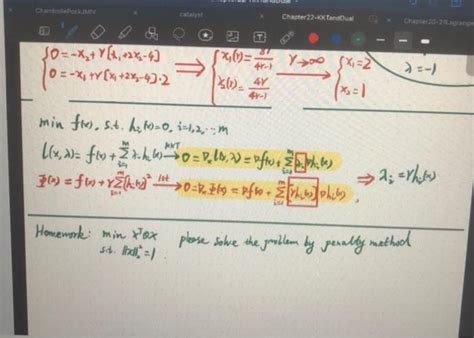 ChambollePockJMIV
catalyst
Chapter22-KKTandDual
Chapter20-21Lagrange
{0=-x₂+γ[x₁+2x₂-4]
0=-x₁+γ[x₁+2x₂-4]·2 ⟹ {x₁(γ)=8γ/(4γ-1)
x₂(γ)=4γ/(4γ-1) γ→∞ {x₁=2
x₂=1 λ=-1
min f(x), s.t. hᵢ(x)=0, i=1,2,...,m
L(x,λ)=f(x)+∑ᵢ₌₁ᵐ λᵢhᵢ(x) KKT→ 0=∇ₓL(x,λ)=∇f(x)+∑ᵢ₌₁ᵐ λᵢ∇hᵢ(x)
⟹ λᵢ=γhᵢ(x)
Φ(x)=f(x)+γ/2∑ᵢ₌₁ᵐ[hᵢ(x)]² 1st→ 0=∇ₓΦ(x)=∇f(x)+∑ᵢ₌₁ᵐ[γhᵢ(x)]∇hᵢ(x)
Homework: min xᵀQx please solve the problem by penalty method
s.t. ||x||₂²=1